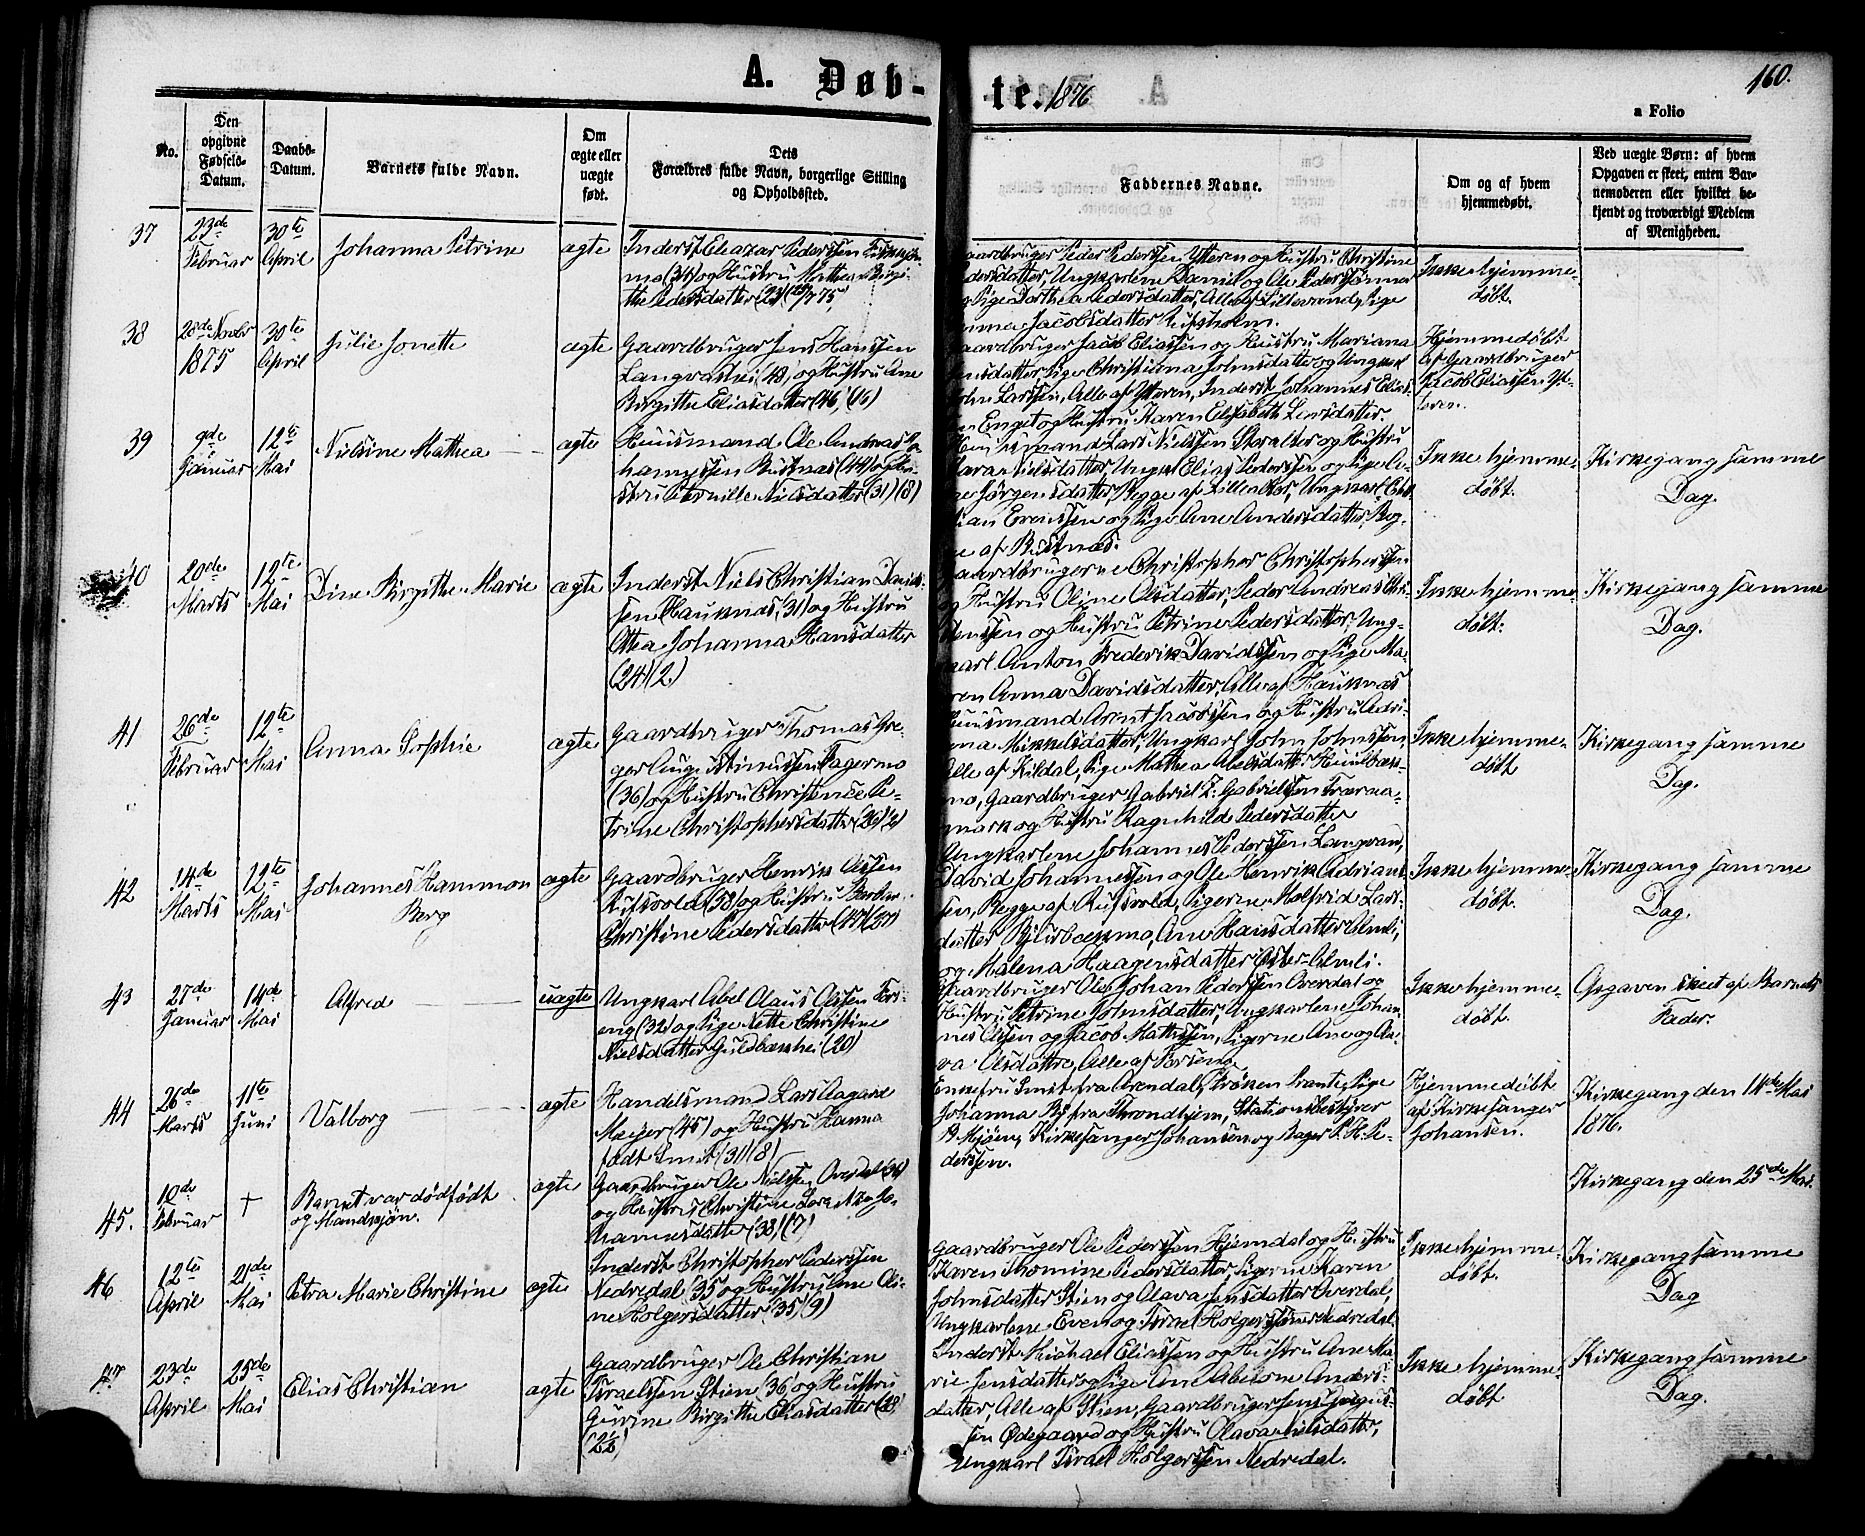 A. Døb-
te. 1876
160.
a Folio
No.
Den opgivne Fødsels-Datum.
Daabs-Datum.
Barnets fulde Navn.
Om ægte eller uægte født.
Dets Forældres fulde Navn, borgerlige Stilling og Opholdssted.
Faddernes Navne.
Om og af hvem hjemmedøbt.
Ved uægte Børn: af hvem Opgaven er skeet, enten Barnemoderen eller hvilket bekjendt og troværdigt Medlem af Menigheden.
37
23de Februar
30te April
Johanna Petrine
ægte
Inderst Eleazar Pederssen
mo (34) og Hustru Mathea Birgi-
the Pedersdatter (23)
Gaardbruger Peder Pederssen Ytteren og Hustru Christine
Pedersdatter, Ungkarlene Daniel og Ole Pederssønner
og Pige Dorthea Pedersdatter, Alle af Lillevand, Pige
Jacobsdatter
Ikke hjemme-
døbt.
38
28de Novbr 1875
30te April
Julie Jonette
ægte
Gaardbruger Jens Hanssen
Langvashei (48) og Hustru Ane
Birgitte Eliasdatter (46) (16)
Gaardbruger Jacob Eliassen og Hustru Mariana
Jensdatter, Pige Christiana Johnsdatter og Ungkarl
John Larssen, Alle af Ytteren, Inderst Johannes Elias-
sen Enget og Hustru Karen Elisabeth Larsdatter
Hjemmedøbt
af Gaardbruger
Jacob Eliassen Yt-
teren.
39
9de Januar
12te Mai
Nilsine Mathea
ægte
Huusmand Ole Andreas Jo-
hannessen Bustnæs (44) og Hu-
stru Pernille Nilsdatter (31) (8)
Huusmand Lars Nilssen Skralter og Hustru
Nilsdatter, Ungk. Elias Pederssen og Pige A-
ne Jørgensdatter, Begge af Lillealter, Ungkarl Chri-
stian Evenssen og Pige Ane Andersdatter, Beg-
ge af Bustnæs.
Ikke hjemme-
døbt.
Kirkegang samme
Dag.
40
20de Marts
12te Mai
Dine Birgitte Marie
ægte
Inderst Niels Christian David-
sen Hauknæs (31) og Hustru
Othea Johanna Hansdatter
(24) (2)
Gaardbrugerne Christopher Christophersen
og Hustru Oline Olsdatter, Peder Andreas Chri-
stenssen og Hustru Petrine Pedersdatter, Ung-
karl Anton Frederik Davidssen og Pige Ma-
ren Anna Davidsdatter, Alle af Hauknæs
Ikke hjemme-
døbt.
Kirkegang samme
Dag.
41
26de Februar
12te Mai
Anna Sophie
ægte
Gaardbruger Thomas Gre-
ger Augustinussen Fagermo
(36) og Hustru Christence Pe-
trine Christophersdatter (26) (2)
Huusmand Arnt Jacobssen og Hustru Adri-
ana Mikkelsdatter, Ungkarl John Johnssen,
Alle af Kildal, Pige Mathea Abelsdatter
mo, Gaardbruger Gabriel Z. Gabrielsen
mark og Hustru Ragnhilde Pedersdatter
Ikke hjemme-
døbt
Kirkegang samme
Dag.
42
14de Marts
12te Mai
Johannes Hammon
Berg
ægte
Gaardbruger Henrik Olssen
Rufsvold (38) og Hustru
Christine Pedersdatter (47) (20)
Ungkarlene Johannes Pederssen Langvan,
David Johannessen og Ole Henrik Adrians-
sen, Begge af Rufsvold, Pigerne Molfrid Lars-
datter Bjurbækmo, Ane Hansdatter Almli,
og Malena Haagensdatter Øster-Almli.
Ikke hjemme-
døbt.
Kirkegang samme
Dag.
43
27de Januar
14de Mai
Alfred
uægte
Ungkarl Abel Olaus Olssen Fors-
eng (32) og Pige Nette Christine
Nielsdatter Guldbækhei (20)
Gaardbruger Ole Johan Pederssen Overdal og
Hustru Petrine Johnsdatter, Ungkarlene Johan-
nes Olssen og Jacob Mathissen, Pigerne Ane og Ola-
va Olsdattre, Alle af Forseng.
Ikke hjemme-
døbt.
Opgaven skeet af Barnets
Fader.
44
26de Marts
11te Juni
Valborg
ægte
Handelsmand Lars Aagaard
Meyer (45) og Hustru Hanna
født Smit (31) (8)
Enkefru Smit fra Arendal, Frøken Prante, Pige
Johanna By fra Throndhjem, Stationsbestyrer
Mjøen, Kirkesanger Johansen og Bager P. H. Pe-
derssen.
Hjemmedøbt
af Kirkesanger
Johansen.
Kirkegang den 14de Mai
1876.
45.
10de Februar
+
Barnet var dødfødt
og Mandkjøn.
ægte
Gaardbruger Ole Nielssen Overdal (36)
og Hustru Christine Lorentze Jo-
hannesdatter (38) (7)
Kirkegang den 25de Mai.
46
12te April
21de Mai
Petra Marie Christine
ægte
Inderst Christopher Pederssen
Nedredal (35) og Hustru Ane Oli-
ne Holgersdatter (35) (9)
Gaardbruger Ole Pederssen Hjemdal og Hustru
Karen Thomine Pedersdatter, Pigerne Karen
Johnsdatter Stien og Olava Jensdatter Overdal,
Ungkarlene Even og Israel Holgerssønner Nedredal.
Ikke hjemme-
døbt.
Kirkegang samme
Dag
47
23de April
25de Mai
Elias Christian
ægte
Gaardbruger Ole Christian
Israelssen Stien (36) og Hustru
Gurine Birgitte Eliasdatter (28)
(2½)
Inderst Michael Eliassen og Hustru Ane Ma-
rie Jensdatter og Pige Ane Abelone Anders-
datter, Alle af Stien, Gaardbruger Jens
sen Ødegaard og Hustru Olava Nilsdatter,
Ungkarl Israel Holgerssen Nedredal.
Ikke hjemme-
døbt
Kirkegang samme
Dag.